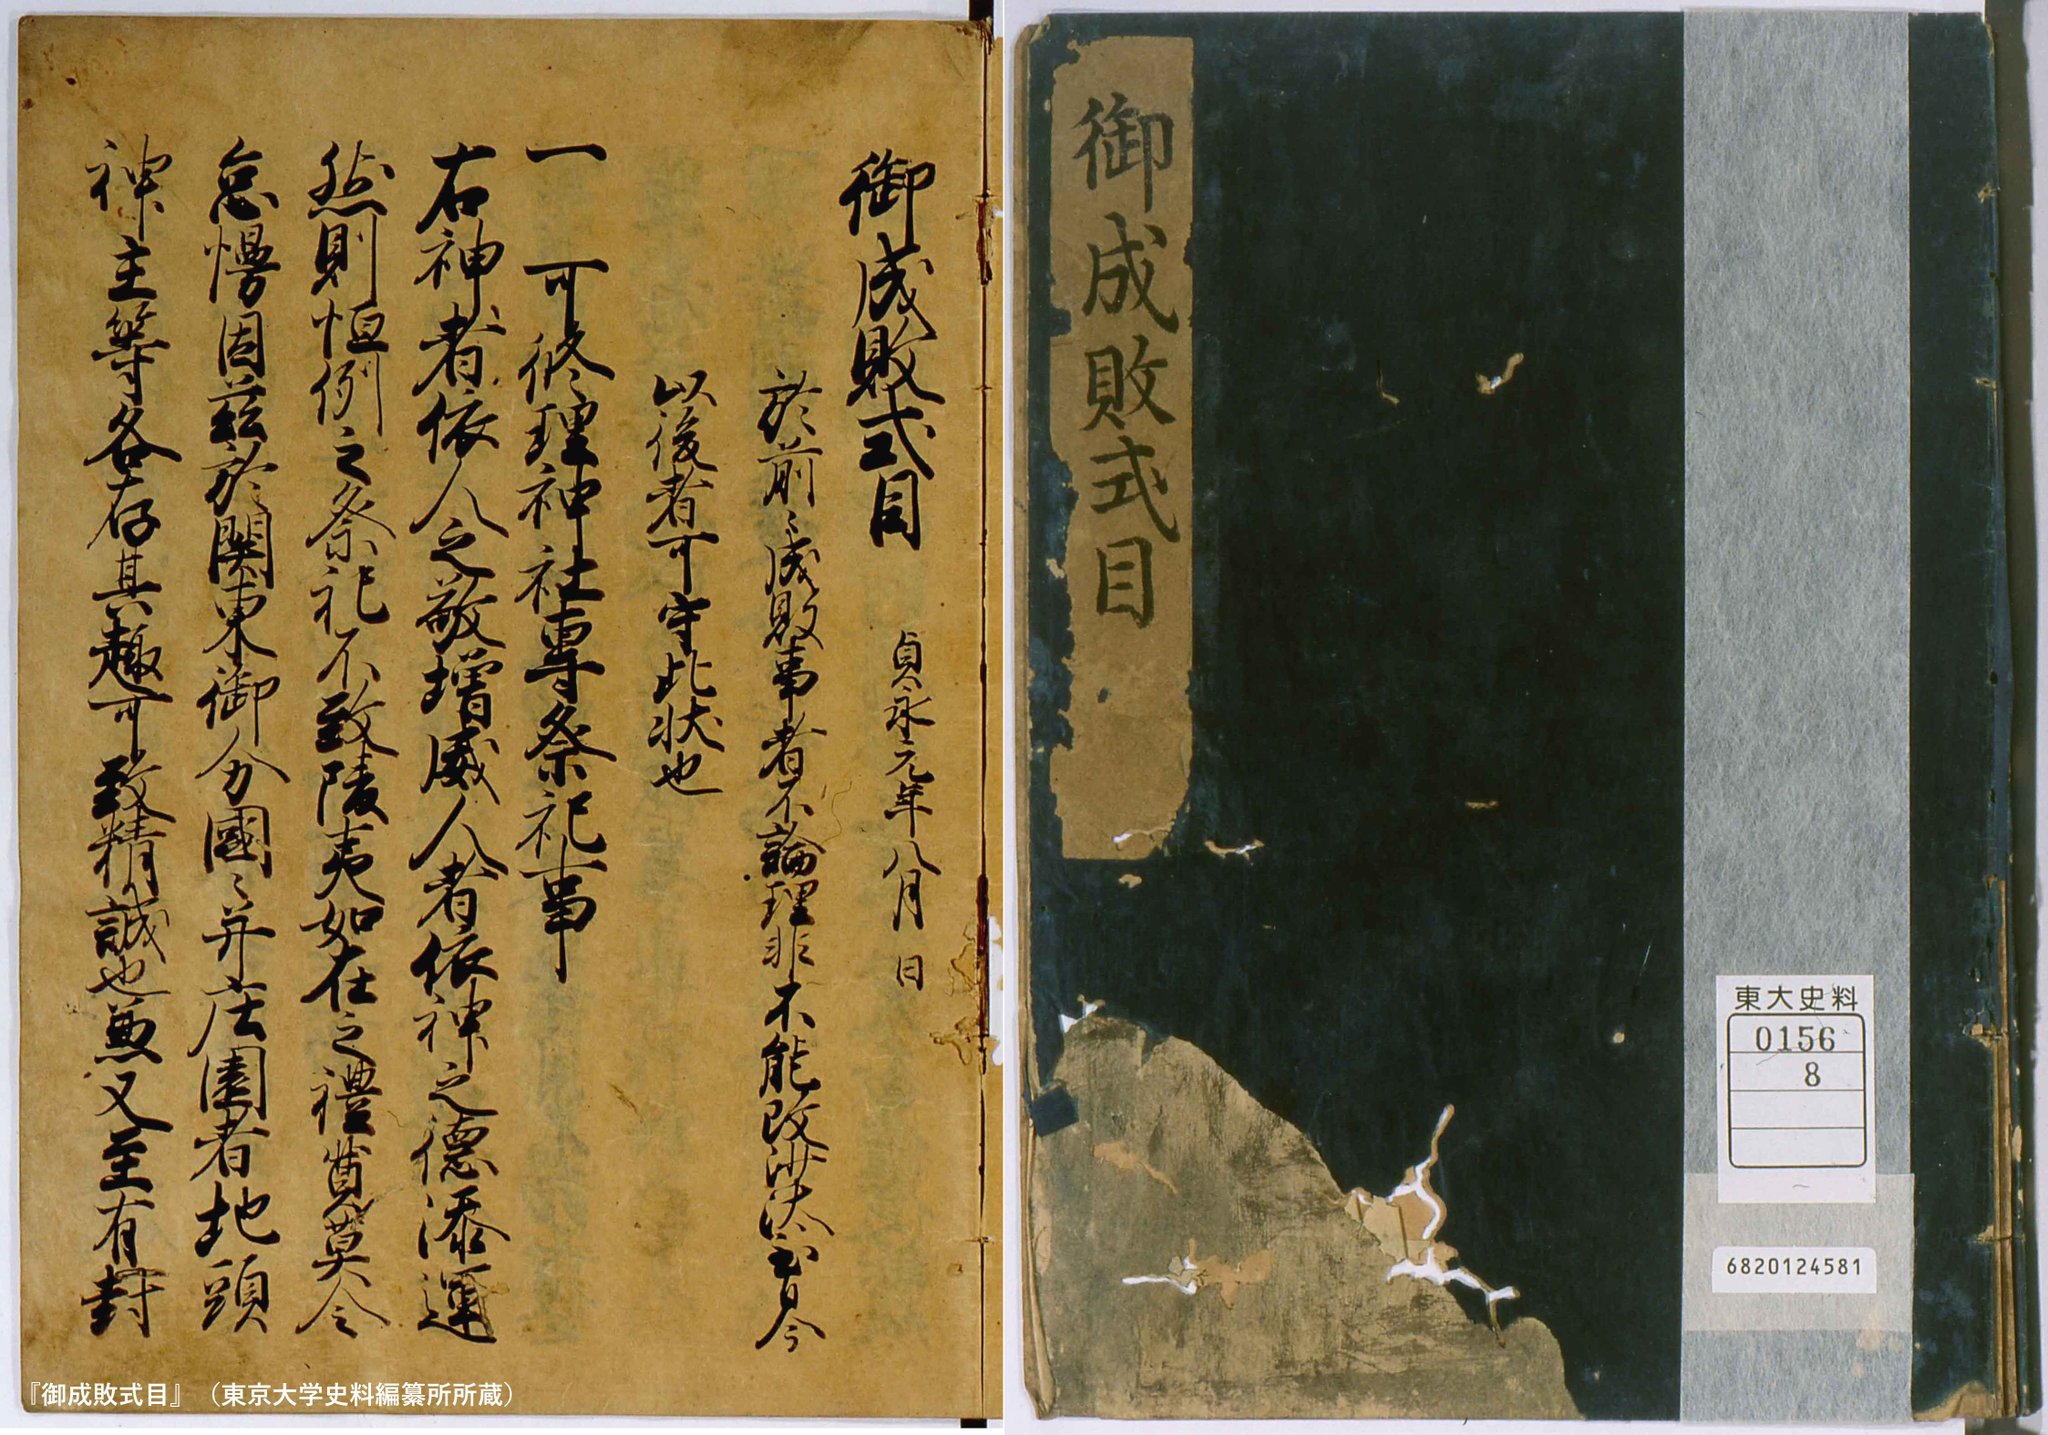 御成敗式目
貞永元年八月 日
於前々成敗事者不論理非不能改沙汰至自今
以後者可守此状也
一 可修理神社専祭祀事
右神者依人之敬増威人者依神之徳添運
然則恒例之祭祀不致陵夷如在之禮奠莫令
怠慢因茲於関東御分國々并庄園者地頭
神主等各存其趣可致精誠也兼又至有封
『御成敗式目』（東京大学史料編纂所所蔵）
御成敗式目
東大史料
0156
8
6820124581